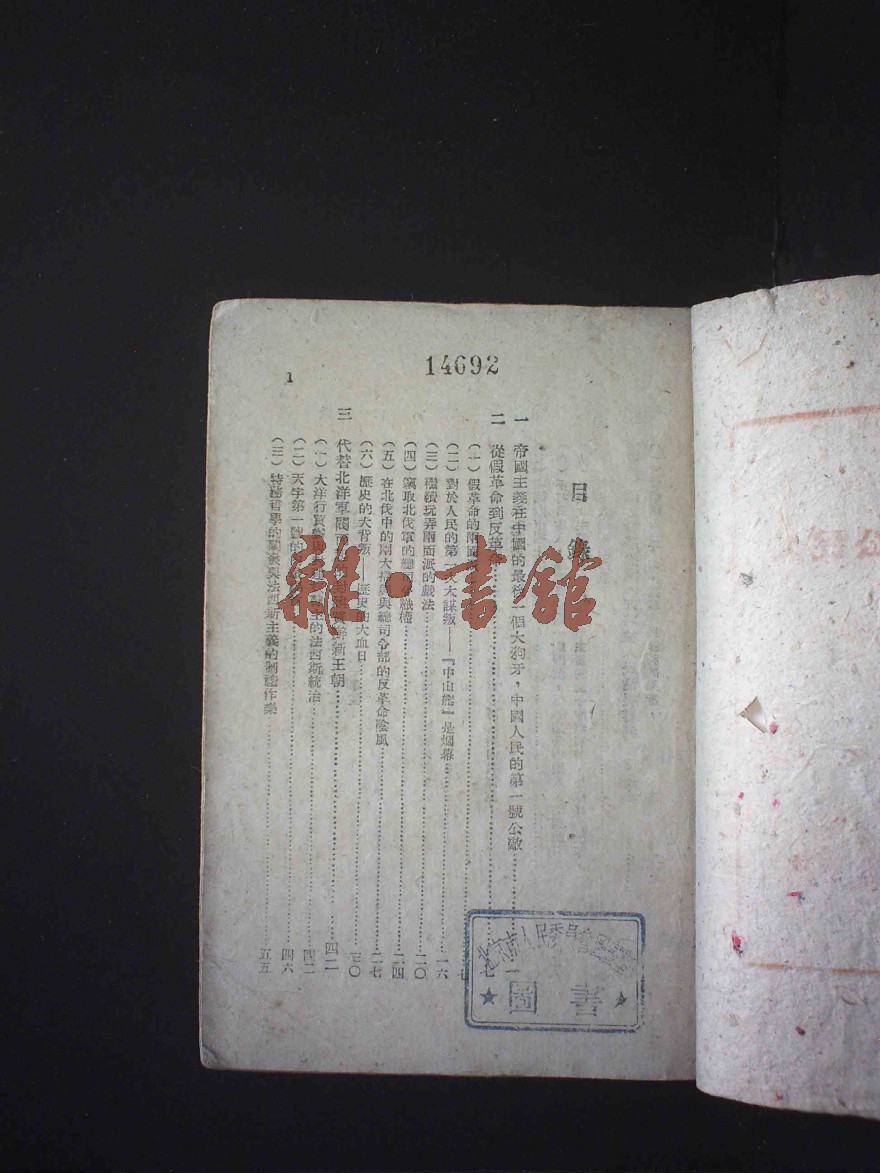 14692
1
目錄
一 帝國主義在中國的最後一個大狗牙,中國人民的第一號公敵……一
二 從假革命到反革命……七
(一)假革命的兩面……七
(二)對於人民的第一次大謀叛——『中山艦』是烟幕……一六
(三)繼續玩弄兩面派的戲法……二〇
(四)竊取北伐軍的總司……二四
(五)在北伐中的兩大……與總司令部的反革命陰風……二七
(六)歷史的大背叛——歷史的大血日……三〇
三 代替北洋軍閥……新王朝……四二
(一)大洋行買辦……的法西斯統治……四二
(二)天字第一號的……四六
(三)特務哲學的……與法西斯主義的制禮作樂……五五
雜·書館
圖書